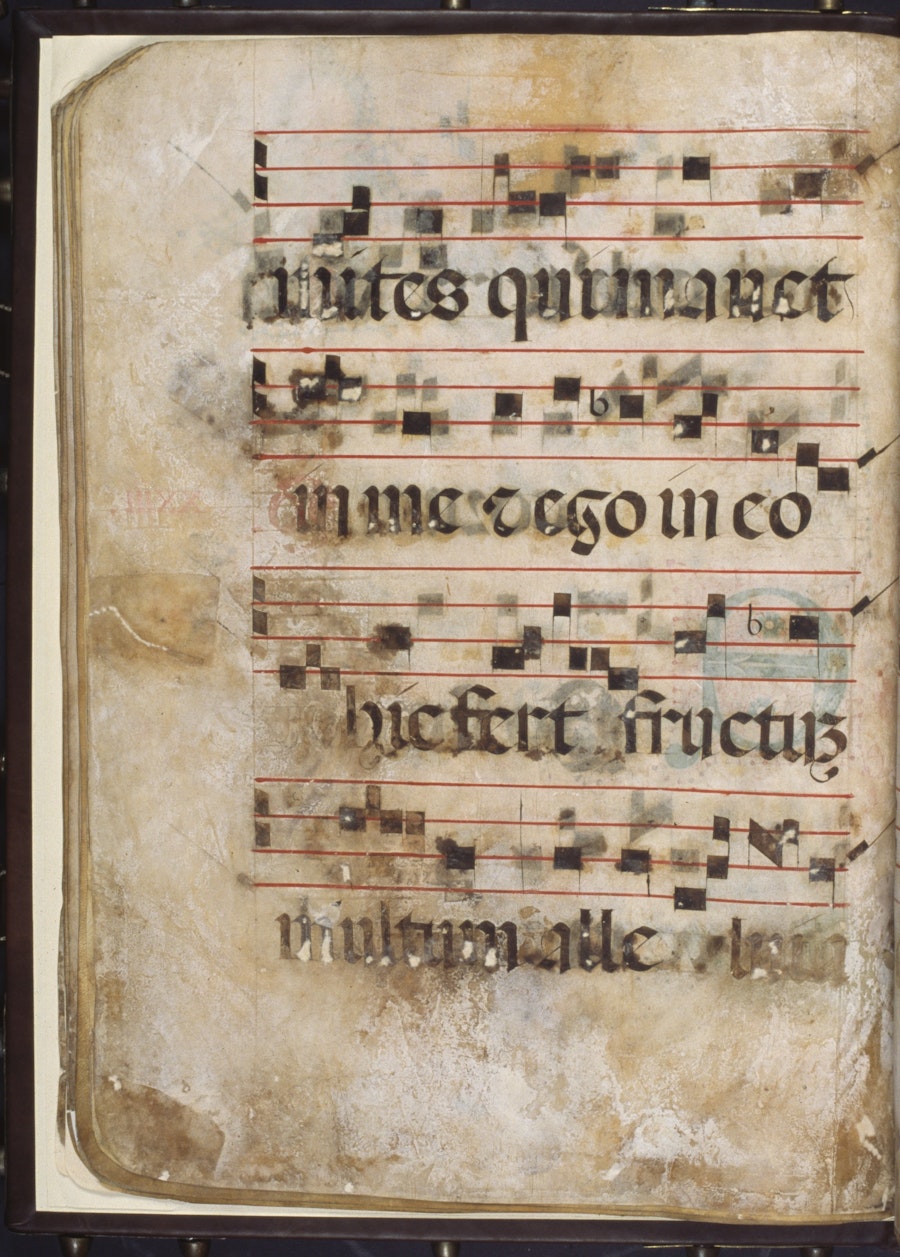 mites qui manet
in me ⁊ ego in eo
hic fert fructuꝫ
multum alle luia